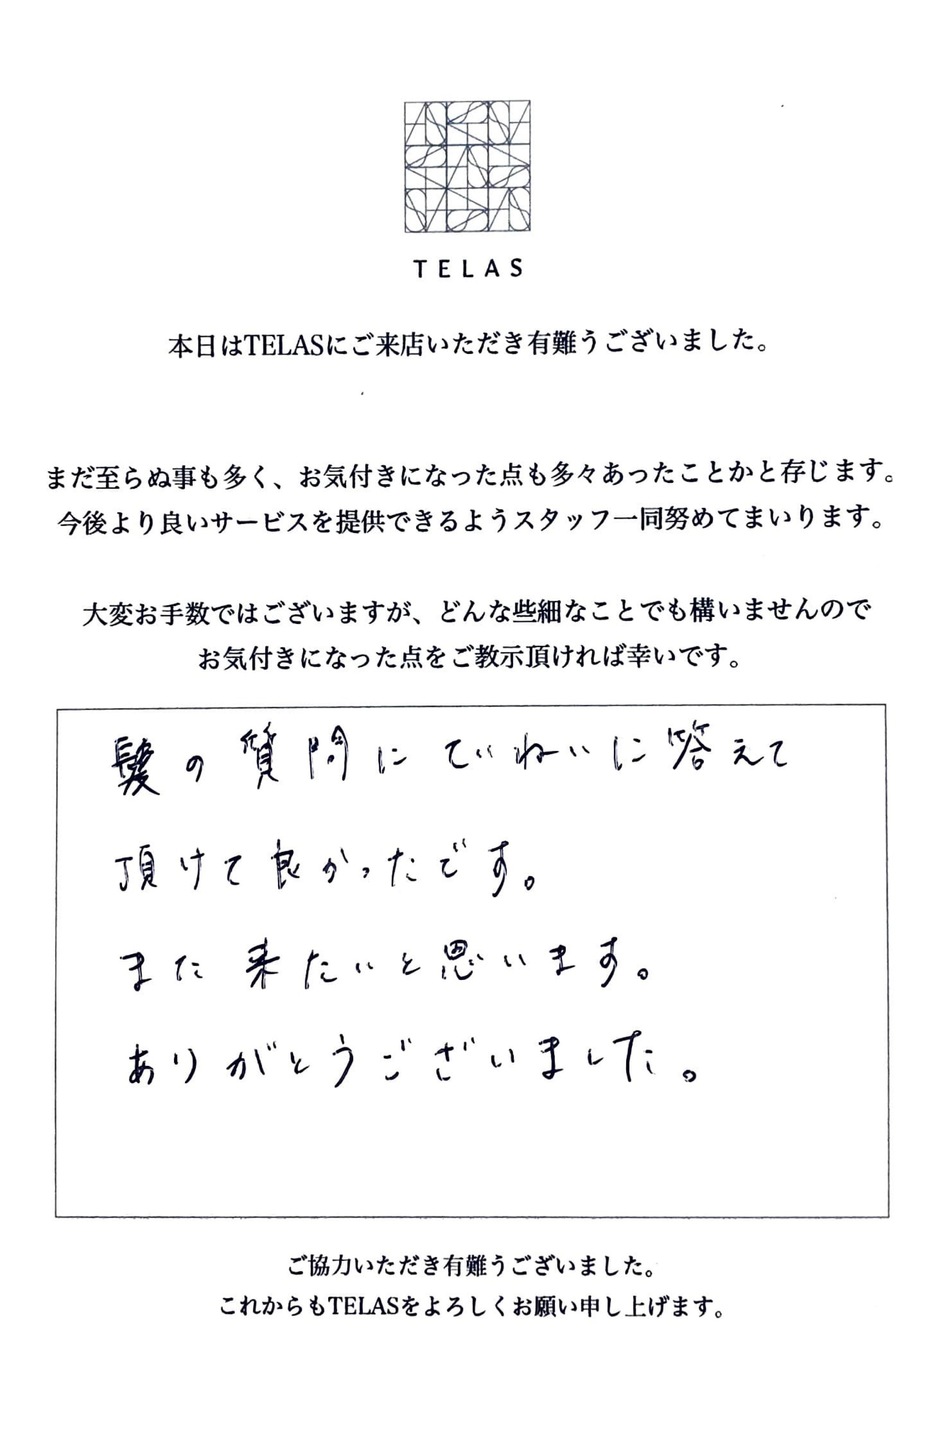 TELAS
本日はTELASにご来店いただき有難うございました。
まだ至らぬ事も多く、お気付きになった点も多々あったことかと存じます。
今後より良いサービスを提供できるようスタッフ一同努めてまいります。
大変お手数ではございますが、どんな些細なことでも構いませんので
お気付きになった点をご教示頂ければ幸いです。
髪の質問にていねいに答えて
頂けて良かったです。
また来たいと思います。
ありがとうございました。
ご協力いただき有難うございました。
これからもTELASをよろしくお願い申し上げます。